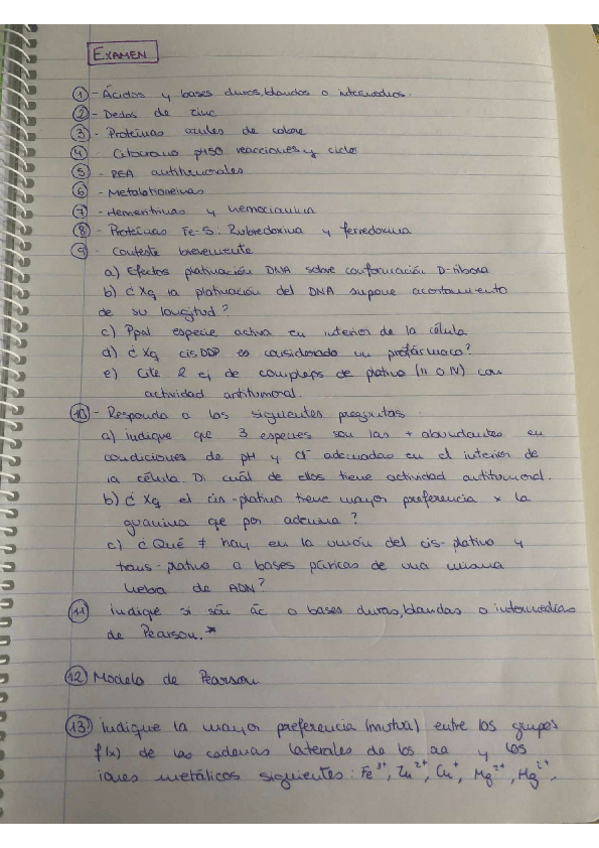 EXAMEN
① - Ácidos y bases duros, blandos o intermedios.
② - Dedos de zinc
③ - Proteínas azules de cobre
④ - Citocromo p450 reacciones y ciclo
⑤ - REA antitumorales
⑥ - Metalotioneinas
⑦ - Hemeritrinas y hemocianina
⑧ - Proteínas Fe-S: Rubredoxina y ferredoxina
⑨ - Conteste brevemente
a) Efectos platinación DNA sobre conformación D-ribosa
b) ¿Xq la platinación del DNA supone acortamiento
de su longitud?
c) Ppal especie activa en interior de la célula
d) ¿Xq cisDDP es considerado un profármaco?
e) Cite 2 ej de complejos de platino (II o IV) con
actividad antitumoral.
⑩ - Responda a las siguientes preguntas.
a) indique qe 3 especies son las + abundantes en
condiciones de pH y Cl⁻ adecuadas en el interior de
la célula. Di cuál de ellos tiene actividad antitumoral.
b) ¿Xq el cis-platino tiene mayor preferencia x la
guanina qe por adenina?
c) ¿Qué ≠ hay en la unión del cis-platino y
trans-platino a bases púricas de una misma
hebra de ADN?
⑪ indique si són ác o bases duras, blandas o intermedias
de Pearson.*
⑫ Modelo de Pearson
⑬ indique la mayor preferencia (mutua) entre los grupos
f(x) de las cadenas laterales de los aa y los
iones metálicos siguientes: Fe³⁺, Zn²⁺, Cu⁺, Mg²⁺, Hg²⁺.